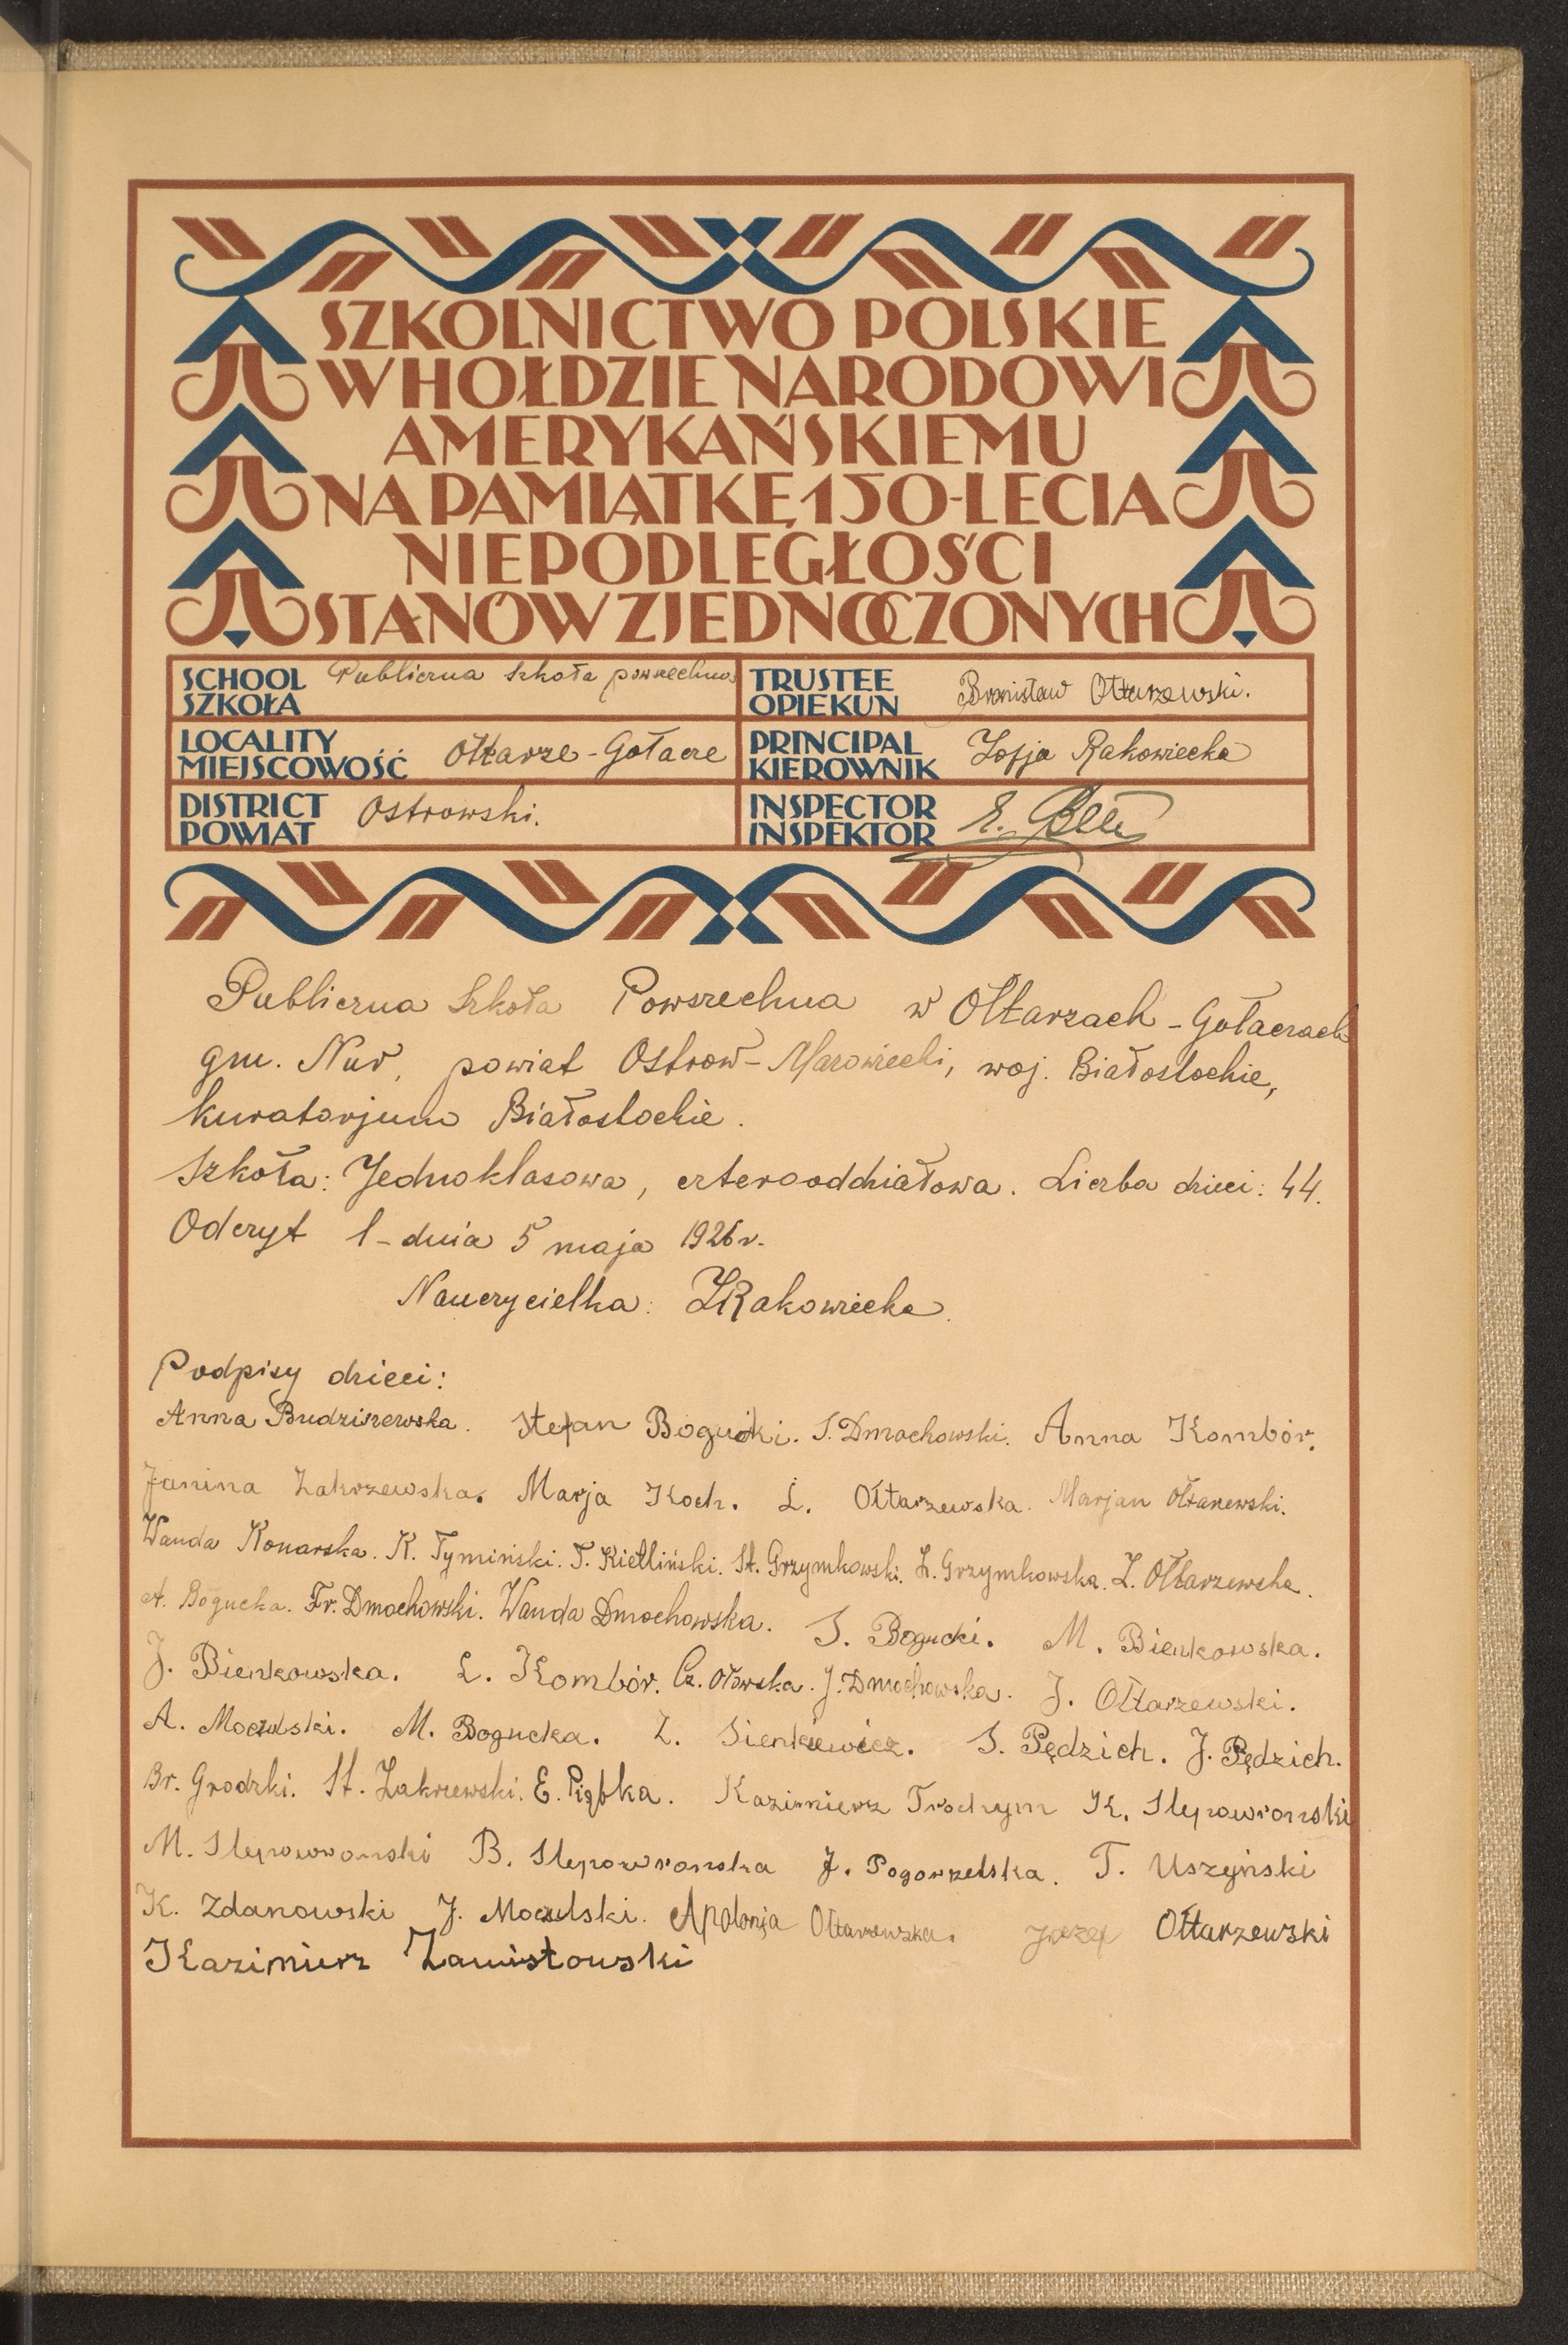 SZKOLNICTWO POLSKIE
W HOŁDZIE NARODOWI
AMERYKAŃSKIEMU
NA PAMIĄTKĘ 150-LECIA
NIEPODLEGŁOŚCI
STANÓW ZJEDNOCZONYCH
SCHOOL SZKOŁA Publiczna szkoła powszechna
TRUSTEE OPIEKUN Bronisław Ołtarzewski.
LOCALITY MIEJSCOWOŚĆ Ołtarze-Gołacze
PRINCIPAL KIEROWNIK Zofja Rakowiecka
DISTRICT POWIAT Ostrowski.
INSPECTOR INSPEKTOR E.
Publiczna Szkoła Powszechna w Ołtarzach-Gołaczach
gm. Nur, powiat Ostrow-Mazowiecki, woj. Białostockie,
kuratorjum Białostockie.
Szkoła: Jednoklasowa, czterooddziałowa. Liczba dzieci: 44.
Odczyt 1-dnia 5 maja 1926 r.
Nauczycielka: ZRakowiecka.
Podpisy dzieci:
Anna Budziszewska. Stefan Bogucki. S. Dmochowski. Anna Kombór.
Janina Zakrzewska. Marja Koch. L. Ołtarzewska. Marjan Ołtarzewski.
Wanda Konarska. K. Tymiński. T. Kietliński. St. Grzymkowski. H. Grzymkowska. Z. Ołtarzewska.
A. Bogucka. Fr. Dmochowski. Wanda Dmochowska. S. Bogucki. M. Bienkowska.
J. Bienkowska. L. Kombór. Cz. Ołowska. J. Dmochowska. J. Ołtarzewski.
A. Moczulski. M. Bogucka. Z. Sienkiewicz. S. Pędzich. J. Pędzich.
Br. Grodzki. St. Zakrzewski. E. Piąbka. Kazimierz Trochym K. Slepowronski
M. Slepowronski B. Slepowronska J. Pogorzelska. T. Uszyński
K. Zdanowski J. Moczulski. Apolonja Ołtarzewska. Józef Ołtarzewski
Kazimierz Zawistowski